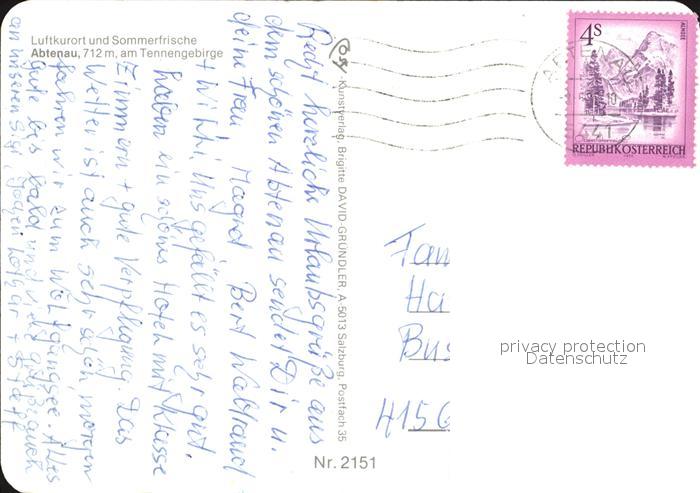 Luftkurort und Sommerfrische
Abtenau, 712 m, am Tennengebirge
Recht herzliche Urlaubsgrüße aus
dem schönen Abtenau sendet Dir u.
deine Frau Magrd, Bert Waltraud
+ Willi, Uns gefällt es sehr gut.
haben ein schönes Hotel mit Klasse
Zimmern + gute Verpflegung. Das
Wetter ist auch sehr schön, morgen
fahren wir zum Wolfgangsee. Alles
gute bis bald und viele Grüße auch
an unseren Sigi
Kunstverlag, Brigitte DAVID-GRÜNDLER, A-5013 Salzburg, Postfach 35
Nr. 2151
4 S
ALMSEE
REPUBLIK ÖSTERREICH
ABTENAU
5441
Fam
Ha
Bus
4156
privacy protection
Datenschutz